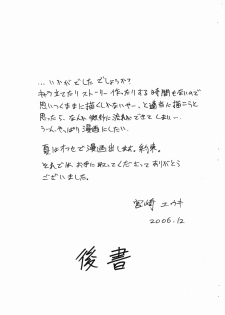 …いかがでしたでしょうか？
ネタ立てたりストーリー作ったりする時間もないので
思いつくままに描くしかないやー。と適当に描こうと
思ったら、なんか微妙に流れができてしまい…
うーんやっぱり漫画にしたい。
夏はわせで漫画出します。約束。
それでは お手に取ってくださって ありがとう
ございました。
宮崎 ユウキ
2006.12
後書